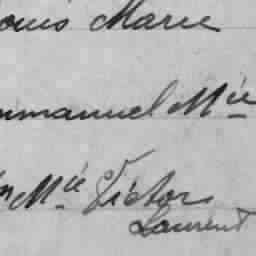 ouis Marie
mmanuel Mie
n Mie Victor
Laurent